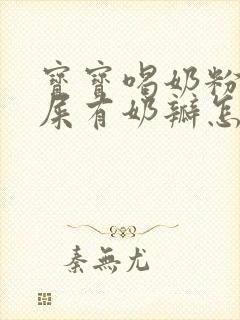 寶寶喝奶粉
屎有奶瓣怎
秦無尤